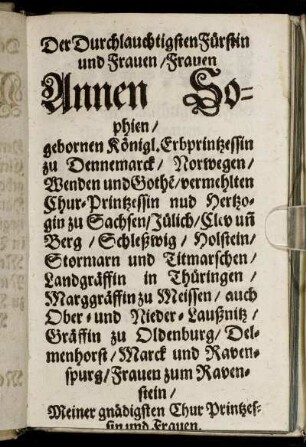 Der Durchlauchtigsten Fürstin
und Frauen / Frauen
Annen So-
phien /
gebornen Königl. Erbprintzessin
zu Dennemarck / Norwegen /
Wenden und Gothẽ / vermehlten
Chur-Printzessin nud Hertzo-
gin zu Sachsen / Jülich / Clev uñ
Berg / Schleßwig / Holstein /
Stormarn und Titmarschen /
Landgräffin in Thüringen /
Marggräffin zu Meissen / auch
Ober- und Nieder-Laußnitz /
Gräffin zu Oldenburg / Del-
menhorst / Marck und Raven-
spurg / Frauen zum Raven-
stein /
Meiner gnädigsten Chur Printzes-
sin und Frauen.